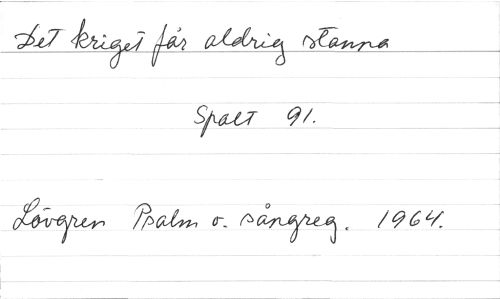 Det kriget får aldrig stanna
Spalt 91.
Lövgren Psalm o. sångreg. 1964.